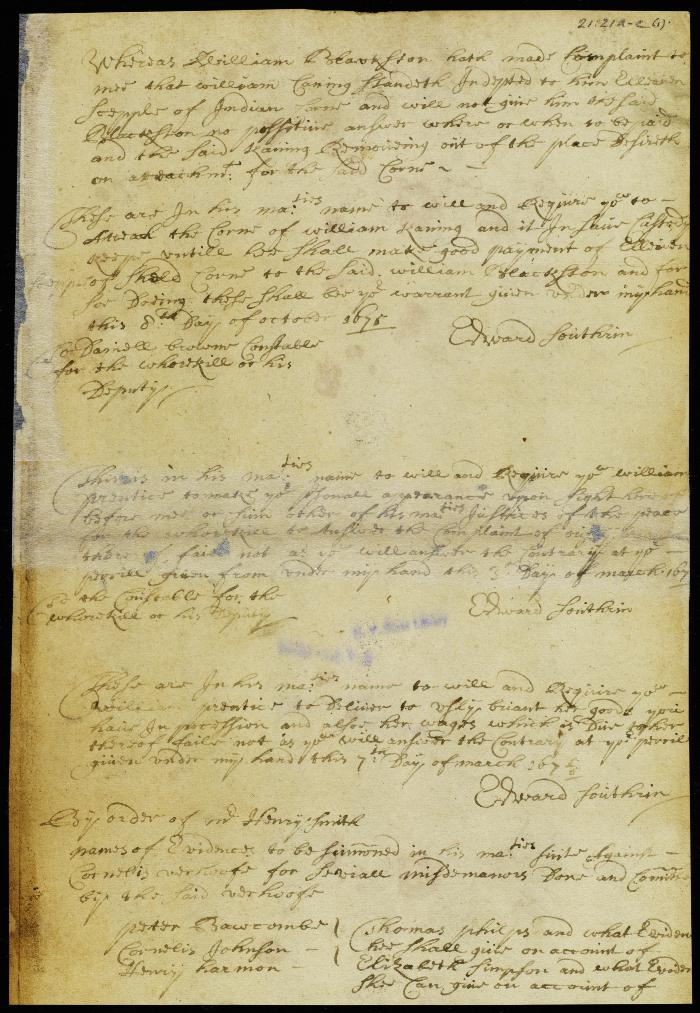 21:21a-c (1).
Whereas William Blackston hath made Complaint to
mee that william Caning standeth Indepted to him Elleven
Scepple of Indian Corne and will not give him the said
Blackston no possitive answer where or when to be paid
and the said Kaning Removeing out of the place desireth
an attachmt: for the said Corne ~
These are In his maties: name to will and Require yow to -
Attach the Corne of william Kaning and it In saive Custody
keepe untill hee shall make good payment of Eleven
scepple of sheld Corne to the said william Blackston and for
soe Doeing these shall bee yor warrant given under my hand
this 8th: Day of october 1675
To Daniell browne Constable
for the whorekill or his
Deputy
Edward Southrin
This is in his maties: name to will and Require yow william
prentice to make yor psonall appearance upon sight hereof
before mee or sum other of his maties Justices of the peace
for the whorekill to Answer the Complaint of
thereof faile not as yow will answer the Contrary at yor -
perrill given from under my hand this 3d Day of march 167
To the Constable for the
whorekill or his Deputy
Edward Southrin
These are In his maties: name to will and Require yow -
William prentice to Deliver to briant her goods you
have In possession and allsoe her wages which is Due to her
thereof faile not as yow will answer the Contrary at yor perrill
given under my hand this 7th: Day of march 167 5/6
Edward Southrin
By order of mr Henry Smith
names of Evidences to be summoned in his maties: suite Against -
Cornelis verhoofe for severall misdemanors Done and Comited
by the said verhoofe
peter Bawcombe
Cornelis Johnson -
Henry harmon -
Thomas philps and what Eviden
hee shall give on account of
Elizabeth Simpson and what Eviden
shee Can give on account of